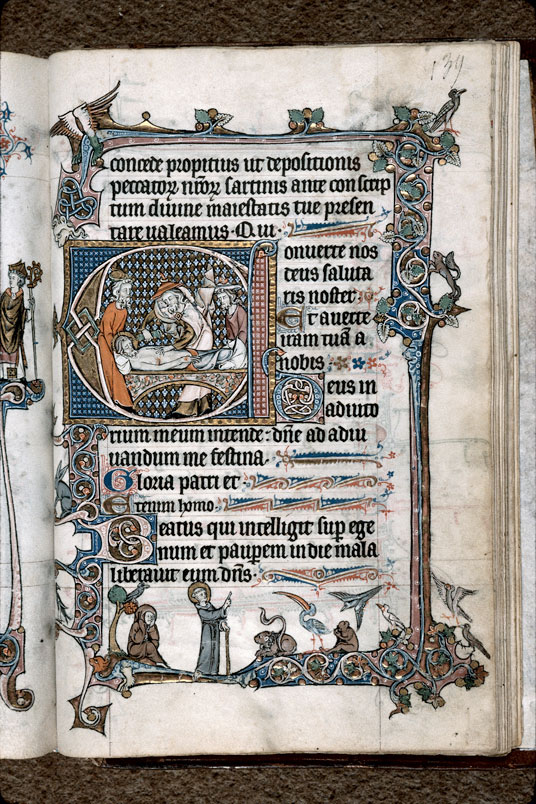 139
concede propitius ut depositionis
peccatoꝝ nr̄oꝝ sartinis ante conscrip
tum diuine maiestatis tue presen
tare ualeamus. Q. ui.
onuerte nos
deus saluta
ris noster
Et auerte
iram tuā a
nobis
Deus in
adiuto
rium meum intende: dn̄e ad adiu
uandum me festina.
Gloria patri et
Eternum homo
Beatus qui intelligit sup ege
num et paupem in die mala
liberauit eum dn̄s.